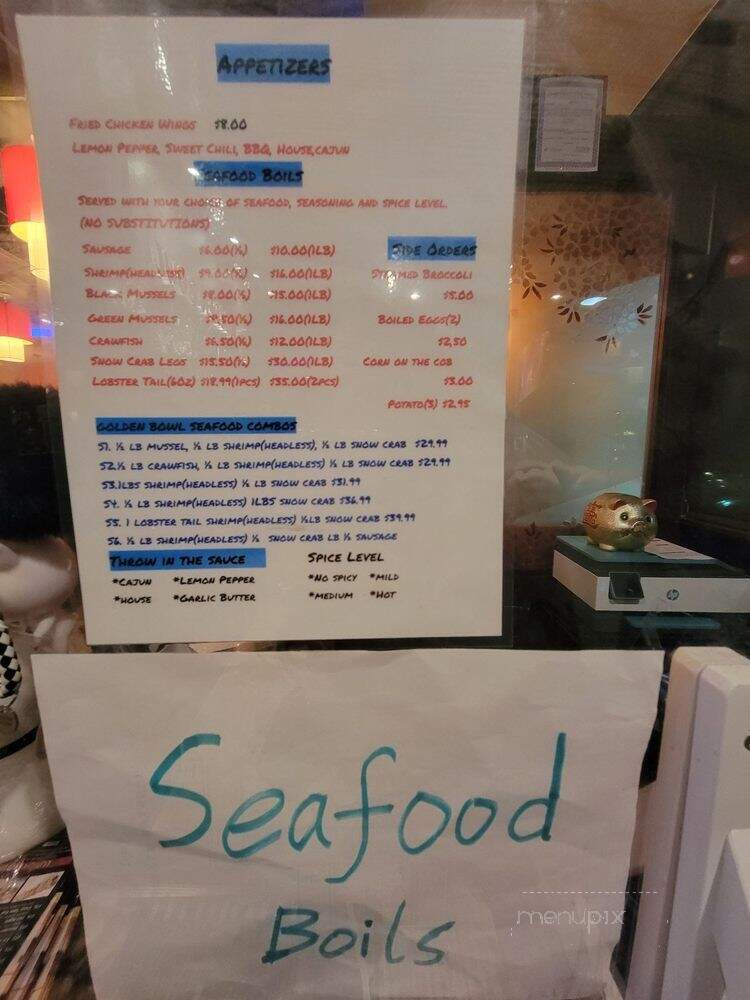 APPETIZERS
FRIED CHICKEN WINGS $8.00
LEMON PEPPER, SWEET CHILI, BBQ, HOUSE,CAJUN
SEAFOOD BOILS
SERVED WITH YOUR CHOICE OF SEAFOOD, SEASONING AND SPICE LEVEL.
(NO SUBSTITUTIONS)
SAUSAGE $6.00(½) $10.00(1LB)
SHRIMP(HEADLESS) $9.00(½) $16.00(1LB)
BLACK MUSSELS $8.00(½) $15.00(1LB)
GREEN MUSSELS $8.50(½) $16.00(1LB)
CRAWFISH $6.50(½) $12.00(1LB)
SNOW CRAB LEGS $15.50(½) $30.00(1LB)
LOBSTER TAIL(6OZ) $18.99(1PCS) $35.00(2PCS)
SIDE ORDERS
STEAMED BROCCOLI
$5.00
BOILED EGGS(2)
$2,50
CORN ON THE COB
$3.00
POTATO(3) $2.95
GOLDEN BOWL SEAFOOD COMBOS
S1. ½ LB MUSSEL, ½ LB SHRIMP(HEADLESS), ½ LB SNOW CRAB $29.99
S2.½ LB CRAWFISH, ½ LB SHRIMP(HEADLESS) ½ LB SNOW CRAB $29.99
S3.1LBS SHRIMP(HEADLESS) ½ LB SNOW CRAB $31.99
S4. ½ LB SHRIMP(HEADLESS) 1LBS SNOW CRAB $36.99
S5. 1 LOBSTER TAIL SHRIMP(HEADLESS) ½LB SNOW CRAB $39.99
S6. ½ LB SHRIMP(HEADLESS) ½ SNOW CRAB LB ½ SAUSAGE
THROW IN THE SAUCE
*CAJUN *LEMON PEPPER
*HOUSE *GARLIC BUTTER
SPICE LEVEL
*NO SPICY *MILD
*MEDIUM *HOT
hp
Seafood
Boils
menupix